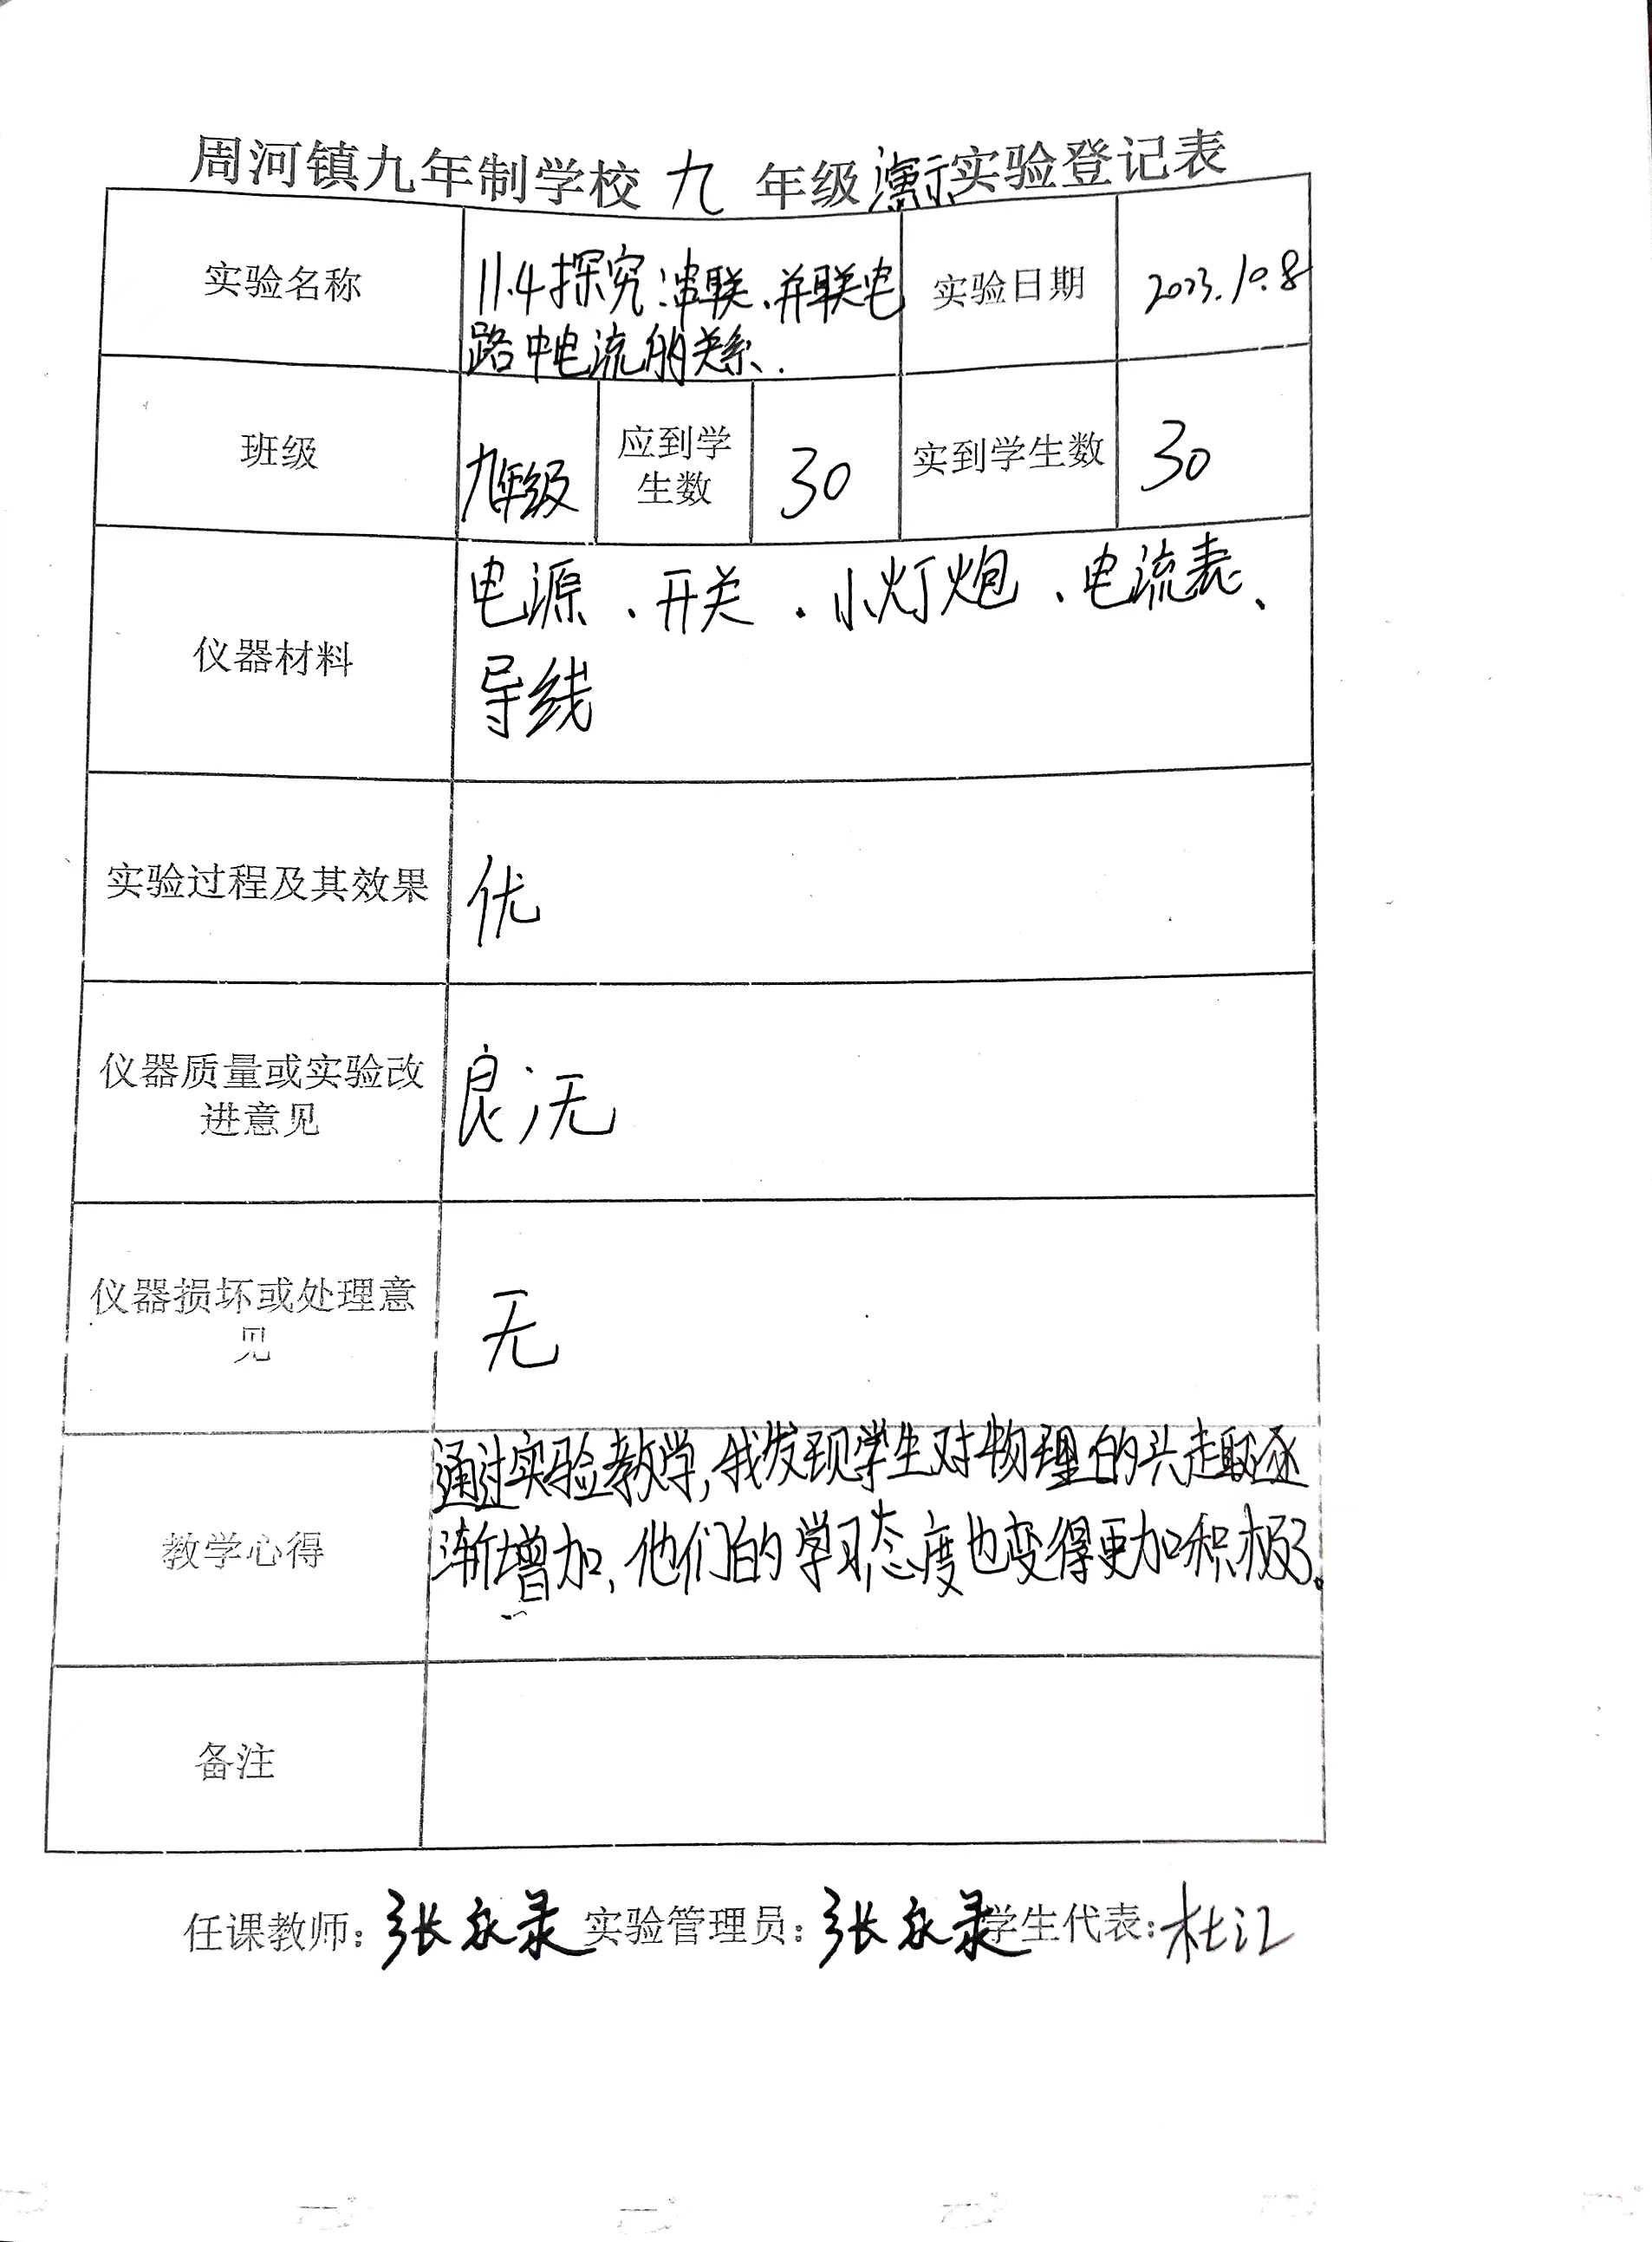 周河镇九年制学校 九 年级演示实验登记表
实验名称
11.4探究:串联、并联电
路中电流的关系.
实验日期
2023.10.8
班级
九年级
应到学
生数
30
实到学生数
30
仪器材料
电源、开关、小灯炮、电流表、
导线
实验过程及其效果
优
仪器质量或实验改
进意见
良;无
仪器损坏或处理意
见
无
教学心得
通过实验教学,我发现学生对物理的兴趣逐
渐增加,他们的学习态度也变得更加积极了。
备注
任课教师:张永录 实验管理员:张永录 学生代表:杜江